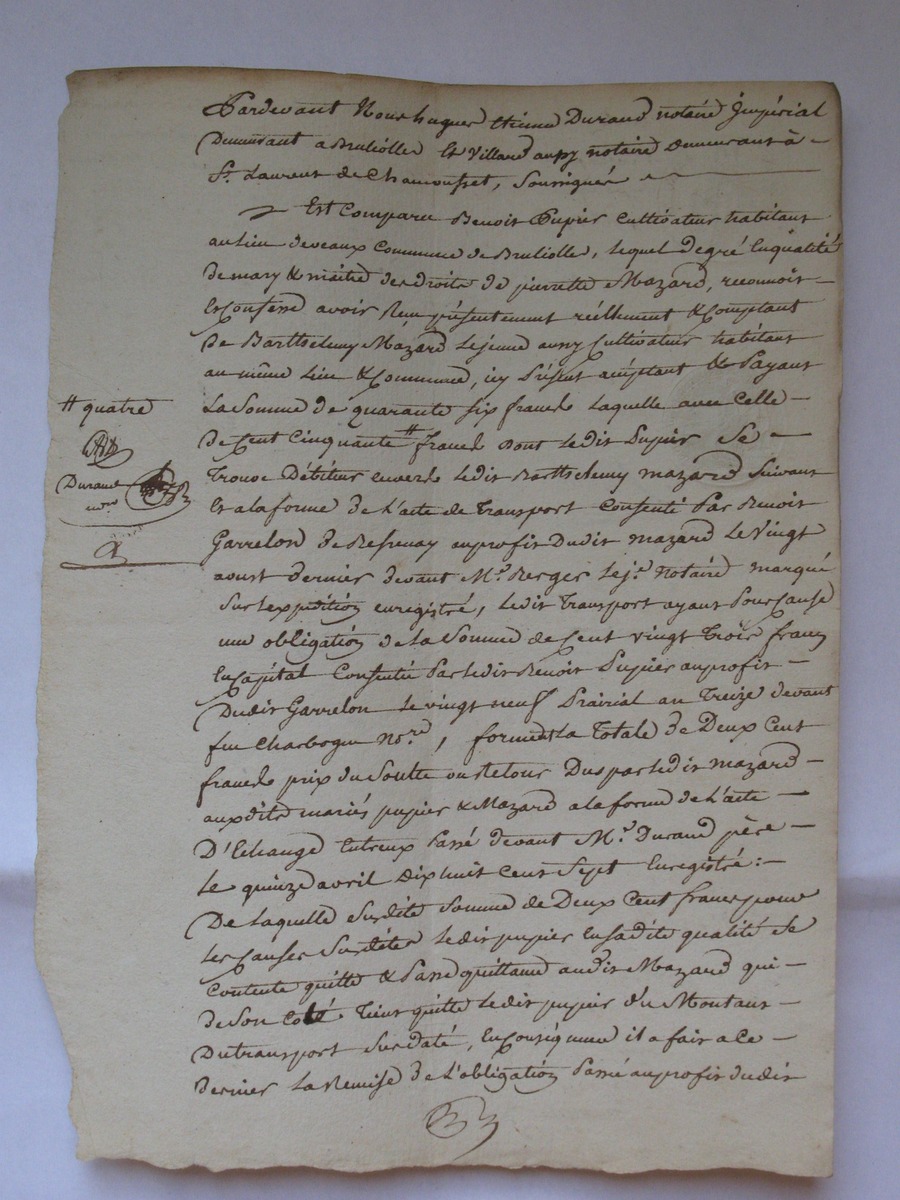 Pardevant Nous hugues Etienne Durand notaire Jmpérial
Demeurant a Brullolles Et Villard aussy notaire demeurant à
St. Laurent de Chamousset, soussignés
Est Comparu Benoit Pupier Cultivateur habitant
au lieu deveaux Commune de Brullolle, lequel de gré En qualité
de mary & maitre des droits de pierrette Mazard, reconnoit
Et Confesse avoir Reçu présentement réellement & Comptant
de Barthelemy Mazard Lejeune aussy Cultivateur habitant
au même Lieu & Commune, icy Présent acceptant & Payant
La Somme de quarante six francs laquelle avec Celle
de Cent Cinquante # francs dont ledit Pupier Se
Trouve Débiteur envers ledit Barthelemy Mazard Suivant
Et alaforme de L'acte de Transport Consenti Par Benoit
Garrelon de auprofit Dudit Mazard Le Vingt
aoust dernier devant Me. Berger Leje. Notaire marqué
Sur lexpédition enregistré, ledit Transport ayant Pour Cause
une obligation de La Somme de Cent vingt Trois francs
En Capital Consentie Par ledit Benoit Pupier auprofit
Dudit Garrelon le vingt neuf Prairial an Treize devant
feu Charbogne Nore, forment La Totale de Deux Cent
francs prix du Soulte ou Retour Dus par ledit mazard
auxdits mariés pupier & Mazard a la forme de L'acte
D'Echange Entreux Passé devant Me. Durand père
Le quinze avril Dix huit Cent Sept Enregistré :
De laquelle Susdite Somme de Deux Cent francs pour
Les Causes Susdites ledit pupier En sadite qualité Se
Contente quitte & Passe quittance audit Mazard qui
de Son Coté Tient quitte ledit pupier du Montant
Du transport Susdaté, En Conséquence il a fait a Ce
dernier La Remise de L'obligation Passé auprofit dudit
# quatre
Durand
nore